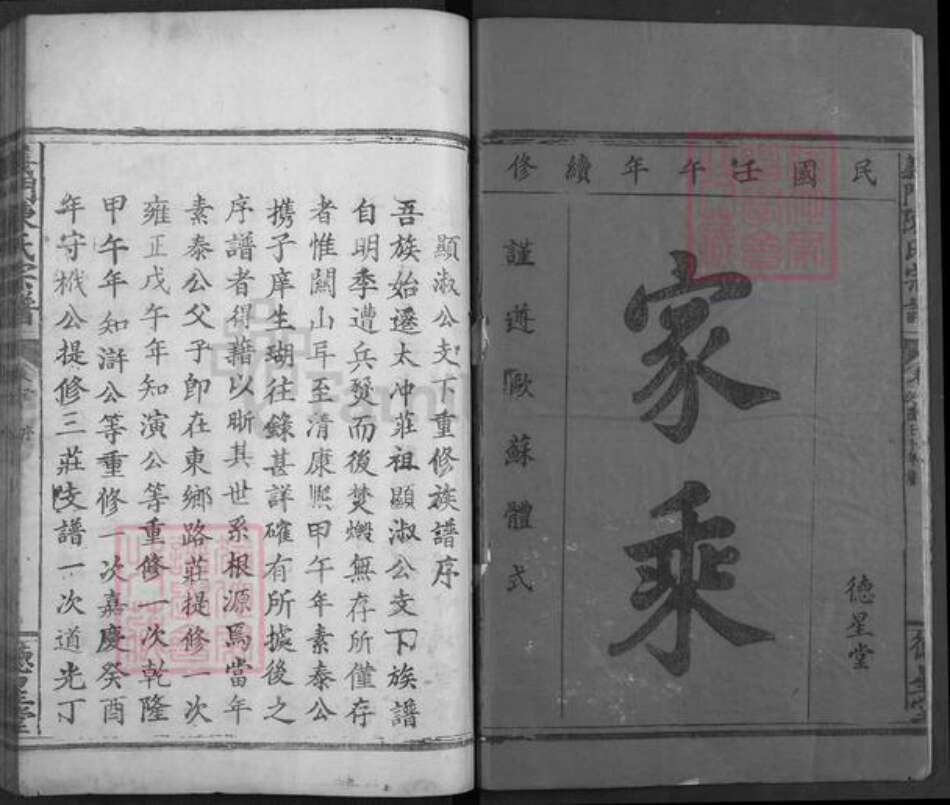 民國壬午年續修
德星堂
家乘
謹遵歐蘇體式
義門陳氏宗譜
顯淑公支下重修族譜序
吾族始遷太冲莊祖顯淑公支下族譜
自明季遭兵燹而後焚燬無存所僅存
者惟關山㞳至清康熙甲午年素泰公
携子庠生瑚往錄甚詳確有所據後之
序譜者得藉以晰其世系根源焉當年
素泰公父子卽在東鄉路莊提修一次
雍正戊午年知演公等重修一次乾隆
甲午年知滸公等重修一次嘉慶癸酉
年守機公提修三莊支譜一次道光丁